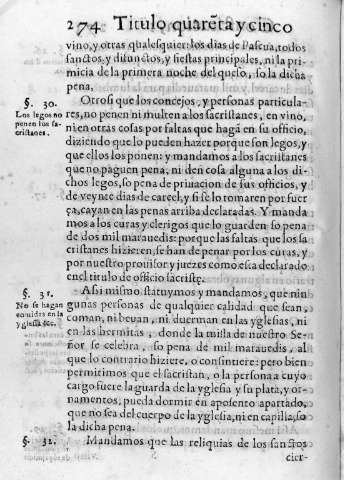 274 Titulo quarẽta y cinco
vino, y otras qualesquier: los dias de Pascua, todos
sanctos, y difunctos, y fiestas principales, ni la pri-
micia de la primera noche del queso, so la dicha
pena.
§. 30.
Los legos no
penen los sa-
cristanes.
Otrosi que los concejos, y personas particula-
res, no penen ni multen a los sacristanes, en vino,
ni en otras cosas por faltas que hagã en su officio,
diziendo que lo pueden hazer porque son legos, y
que ellos los ponen: y mandamos a los sacristanes
que no paguen pena, ni den cosa alguna a los di-
chos legos, so pena de priuacion de sus officios, y
de veynte dias de carcel, y si se lo tomaren por fuer
ça, cayan en las penas arriba declaradas. Y manda
mos a los curas y clerigos que lo guarden so pena
de dos mil marauedis: porque las faltas que los sa
cristanes hizierẽ, se han de penar por los curas, y
por nuestro prouisor y juezes como esta declarado
en el titulo de officio sacristę.
§. 31.
No se hagan
comidas en la
yglesia &c.
Assi mismo statuymos y mandamos, que nin
gunas personas de qualquier calidad que sean,
coman, ni beuan, ni duerman en las yglesias, ni
en las hermitas, donde la missa de nuestro Se-
ñor se celebra, so pena de mil marauedis, al
que lo contrario hiziere, o consintiere: pero bien
permitimos que el sacristan, o la persona a cuyo
cargo fuere la guarda de la yglesia y su plata, y or-
namentos, pueda dormir en aposento apartado,
que no sea del cuerpo de la yglesia, ni en capilla, so
la dicha pena.
§. 32.
Mandamos que las reliquias de los sanctos
cier-